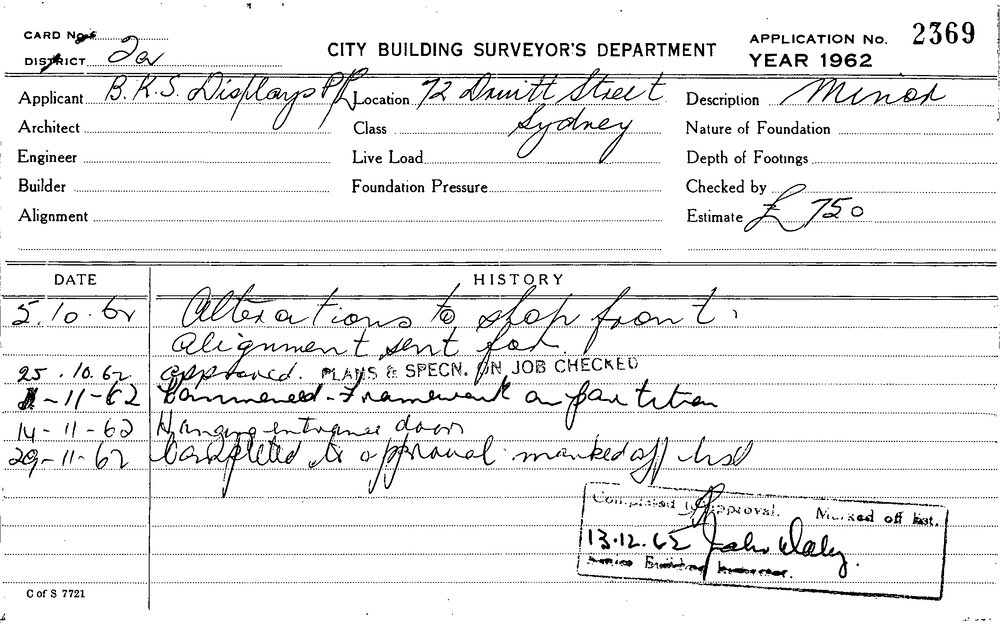 CARD No.
DISTRICT 2a
CITY BUILDING SURVEYOR'S DEPARTMENT
APPLICATION No. 2369
YEAR 1962
Applicant B.K.S. Displays P/L Location 72 Druitt Street Description Minor
Architect Class Sydney Nature of Foundation
Engineer Live Load Depth of Footings
Builder Foundation Pressure Checked by
Alignment Estimate £ 750
DATE HISTORY
5.10.62 Alterations to shop front.
Alignment sent for.
25.10.62 approved. PLANS & SPECN. ON JOB CHECKED
-11-62 Commenced - Framework on partition
14-11-62 Hanging entrance doors
29-11-62 Completed to approval marked off list
Completed to Approval. Marked off list.
13.12.62 John Daly
Senior Building
C of S 7721